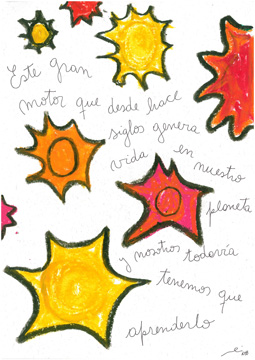 Este gran
motor que desde hace
siglos genera
vida en nuestro
planeta
y nosotros todavía
tenemos que
aprenderlo